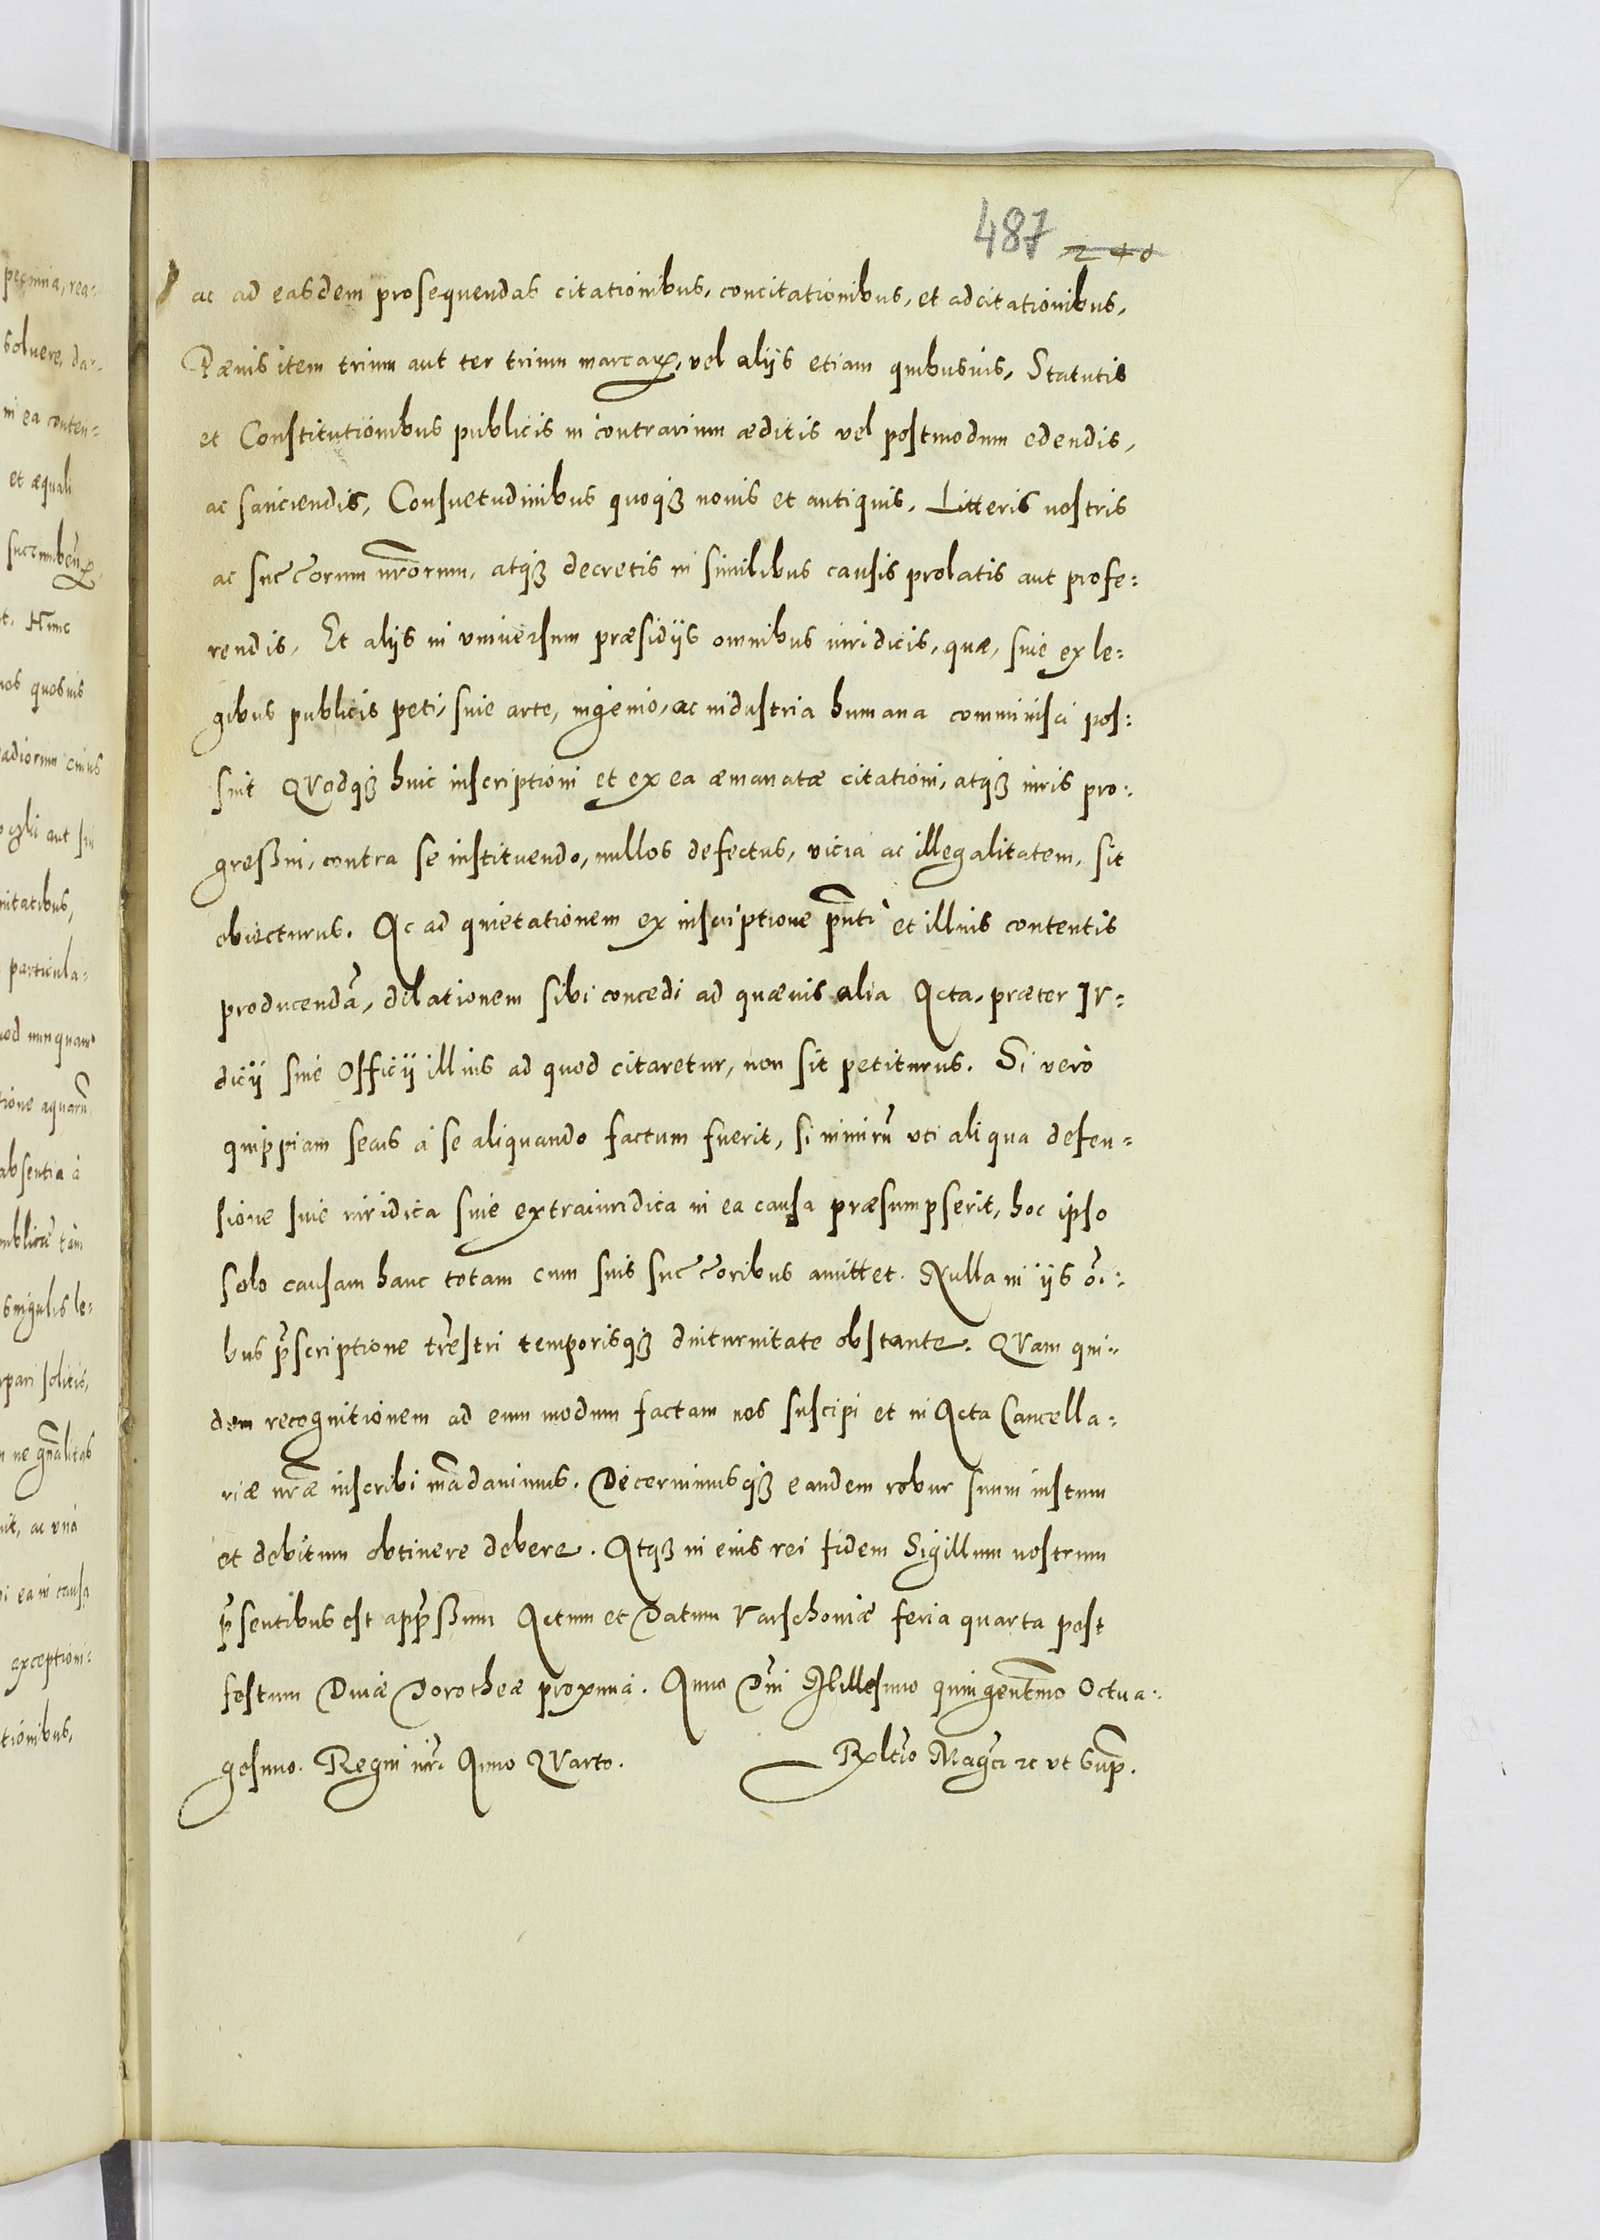 487 240
ac ad easdem prosequendas citationibus, concitationibus, et adcitationibus,
Pænis item trium aut ter trium marcarꝝ, vel alijs etiam quibusuis, Statutis
et Constitutionibus publicis in contrarium æditis vel postmodum edendis,
ac sanciendis, Consuetudinibus quoqꝫ nouis et antiquis, Litteris nostris
ac succorum nr̃orum, atqꝫ decretis in similibus causis prolatis aut profe:
rendis, Et alijs in vniuersum præsidijs omnibus iuridicis, quæ, siue ex le:
gibus publicis peti, siue arte, ingenio, ac industria humana comminisci pos:
sint QVodqꝫ huic inscriptioni et ex ea æmanatæ citationi, atqꝫ iuris pro:
greßui, contra se instituendo, nullos defectus, vicia ac illegalitatem, sit
obiecturus. Ac ad quietationem ex inscriptione pñti et illius contentis
producendã, dilationem sibi concedi ad quæuis alia Acta, præter IV=
dicij siue Officij illius ad quod citaretur, non sit petiturus. Si verò
quippiam secus à se aliquando factum fuerit, si nimirũ vti aliqua defen=
sione siue iuridica siue extraiuridica in ea causa præsumpserit, hoc ipso
solo causam hanc totam cum suis succoribus amittet. Nulla in ijs õi:
bus p̃scriptione tr̃estri temporisqꝫ diuturnitate obstante. QVam qui=
dem recognitionem ad eum modum factam nos suscipi et in Acta Cancella:
riæ nr̃æ inscribi mãdauimus. Decernimusqꝫ eandem robur suum iustum
et debitum obtinere debere. Atqꝫ in eius rei fidem Sigillum nostrum
p̃sentibus est app̃ßum Actum et Datum Varschouiæ feria quarta post
festum Diuæ Dorotheæ proxima. Anno Dñi Millesimo quingentmõ Octua:
gesimo. Regni nr̃i Anno QVarto. Rxltio Magci ꝛc vt Sup.